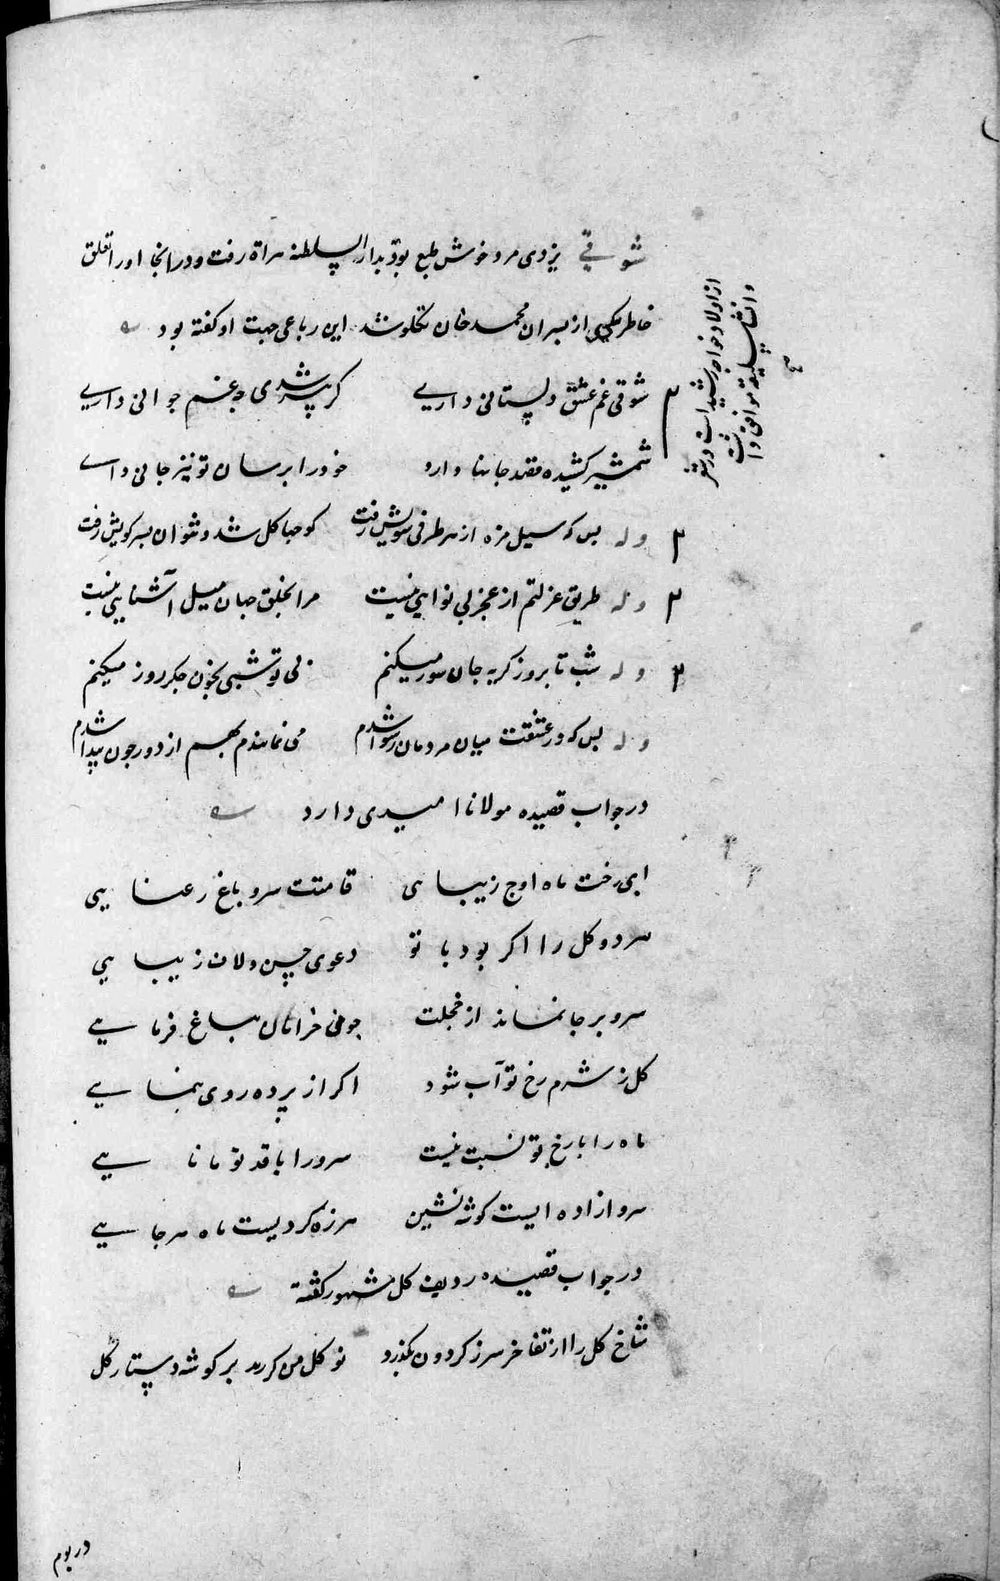 شوقی یزدی مرد خوش طبع بود بدار السلطنه هراة رفت و در انجا او را تعلق
خاطر بیکی از پسران محمد خان تکلو شد این رباعی جهت او کفته بود
شوقی غم عشق دلستانی داری کر پیر شدی چه غم جوانی داری
شمشیر کشیده قصد جانها دارد خود را برسان تو نیز جانی داری
وله بس که سیل مژه از هر طرفی سویش رفت کو جها کل شد و نتوان بسر کویش رفت
وله طریق عزلتم از عجز بی نوایی نیست مرا بخلق جهان میل آشنایی نیست
وله شب تا بروز کریه جان سوز میکنم بی تو شبی بخون جکر روز میکنم
وله بس که در عشقت میان مردمان رسوا شدم می نمایندم بهم از دور چون پیدا شدم
در جواب قصیده مولانا امیدی دارد
ای رخت ماه اوج زیبایی قامتت سرو باغ رعنایی
سرو و کل را اکر بود با تو دعوی حسن و لاف زیبایی
سرو بر جا نماند از خجلت چو خرامان بباغ فرمایی
کل ز شرم رخ تو آب شود اکر از پرده روی بنمایی
ماه را با رخ تو نسبت نیست سرو را با قد تو مانایی
سرو ازاده ایست کوشه نشین هرزه کردیست ماه هر جایی
در جواب قصیده ردیف کل مشهور کفته
شاخ کل را از تفاخر سر ز کردون بکذرد نو کل من کر زند بر کوشه دستار کل
از اولاد خواجه رشید است در شعر
و انشا سلیقه موافق داشت
در بوم